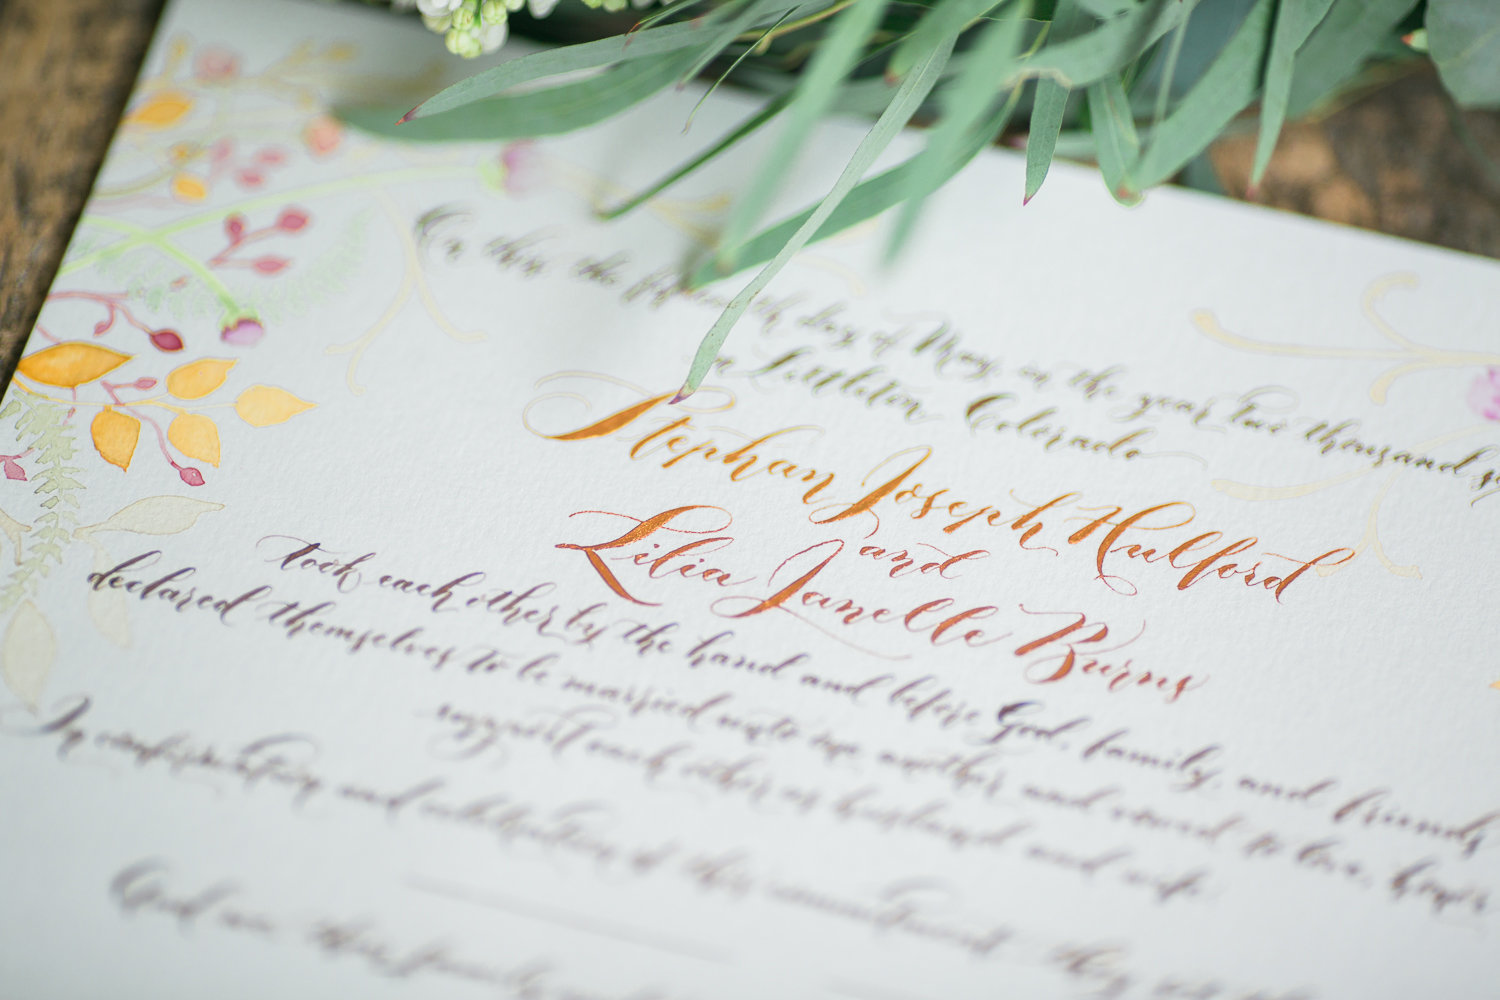 On this, the fifteenth day of May, in the year two thousand
Littleton Colorado
Stephan Joseph Hulford
and
Lilia Janelle Burns
took each other by the hand and before God, family, and friends
declared themselves to be married unto one another and vowed to love, honor
support each other as husband and wife.
In confirmation and celebration of this commitment they
God this family